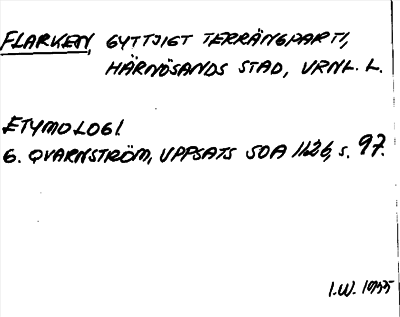 FLARKEN, GYTTJIGT TERRÄNGPARTI,
HÄRNÖSANDS STAD, VRNL. L.
ETYMOLOGI.
G. QVARNSTRÖM, UPPSATS SOA 1626, s. 97.
I.W. 1955